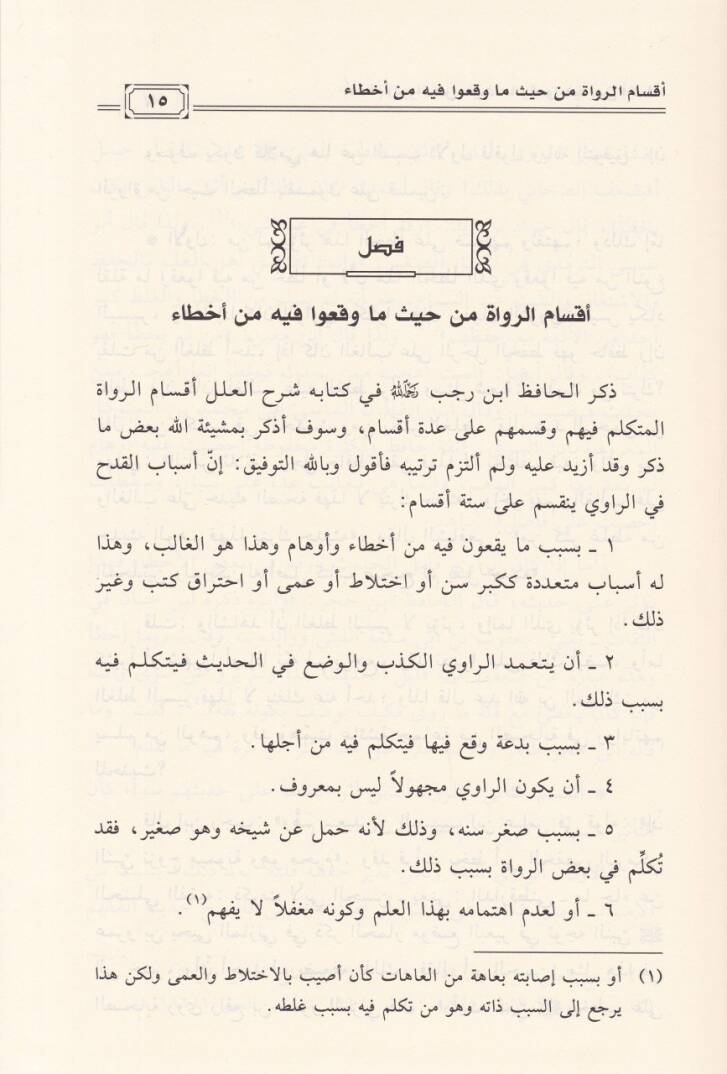 أقسام الرواة من حيث ما وقعوا فيه من أخطاء
١٥
فصل
أقسام الرواة من حيث ما وقعوا فيه من أخطاء
ذكر الحافظ ابن رجب رحمه الله في كتابه شرح العلل أقسام الرواة
المتكلم فيهم وقسمهم على عدة أقسام، وسوف أذكر بمشيئة الله بعض ما
ذكر وقد أزيد عليه ولم ألتزم ترتيبه فأقول وبالله التوفيق: إنّ أسباب القدح
في الراوي ينقسم على ستة أقسام:
١ ـ بسبب ما يقعون فيه من أخطاء وأوهام وهذا هو الغالب، وهذا
له أسباب متعددة ككبر سن أو اختلاط أو عمى أو احتراق كتب وغير
ذلك.
٢ ـ أن يتعمد الراوي الكذب والوضع في الحديث فيتكلم فيه
بسبب ذلك.
٣ ـ بسبب بدعة وقع فيها فيتكلم فيه من أجلها.
٤ ـ أن يكون الراوي مجهولاً ليس بمعروف.
٥ ـ بسبب صغر سنه، وذلك لأنه حمل عن شيخه وهو صغير، فقد
تُكلِّم في بعض الرواة بسبب ذلك.
٦ ـ أو لعدم اهتمامه بهذا العلم وكونه مغفلاً لا يفهم(١).
(١) أو بسبب إصابته بعاهة من العاهات كأن أصيب بالاختلاط والعمى ولكن هذا
يرجع إلى السبب ذاته وهو من تكلم فيه بسبب غلطه.